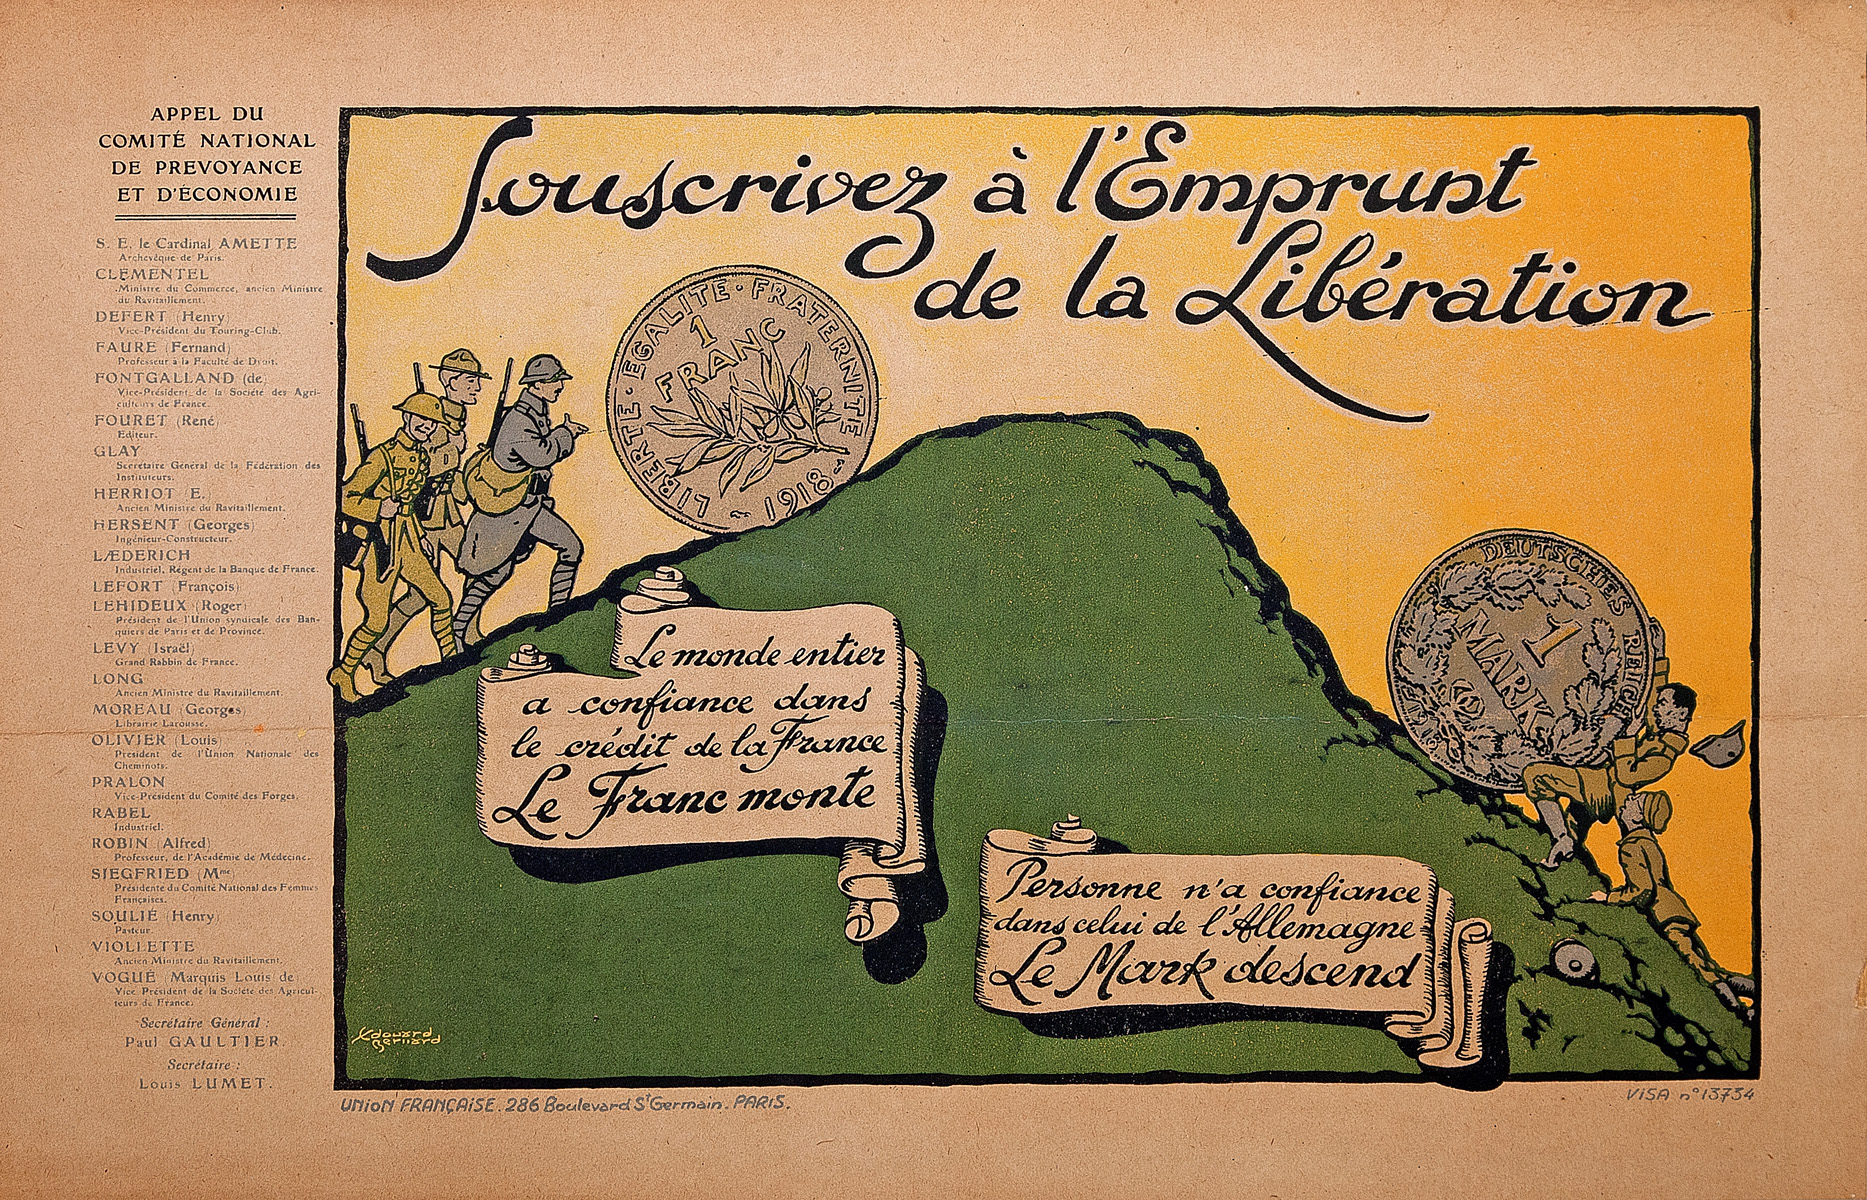 APPEL DU
COMITÉ NATIONAL
DE PREVOYANCE
ET D'ÉCONOMIE
S. E. le Cardinal AMETTE
Archevêque de Paris.
CLÉMENTEL
Ministre du Commerce, ancien Ministre
du Ravitaillement.
DEFERT (Henry)
Vice-Président du Touring-Club.
FAURE (Fernand)
Professeur à la Faculté de Droit.
FONTGALLAND (de)
Vice-Président de la Société des Agri-
culteurs de France.
FOURET (René)
Editeur.
GLAY
Secrétaire Général de la Fédération des
Instituteurs.
HERRIOT E.
Ancien Ministre du Ravitaillement.
HERSENT (Georges)
Ingénieur-Constructeur.
LÆDERICH
Industriel, Régent de la Banque de France.
LEFORT (François)
LEHIDEUX (Roger)
Président de l'Union syndicale des Ban-
quiers de Paris et de Province.
LEVY (Israël)
Grand Rabbin de France.
LONG
Ancien Ministre du Ravitaillement.
MOREAU (Georges)
Librairie Larousse.
OLIVIER (Louis)
Président de l'Union Nationale des
Cheminots.
PRALON
Vice-Président du Comité des Forges.
RABEL
Industriel.
ROBIN (Alfred)
Professeur, de l'Académie de Médecine.
SIEGFRIED (Mme)
Présidente du Comité National des Femmes
Françaises.
SOULIÉ (Henry)
Pasteur.
VIOLLETTE
Ancien Ministre du Ravitaillement.
VOGUÉ (Marquis Louis de)
Vice Président de la Société des Agricul-
teurs de France.
Secrétaire Général :
Paul GAULTIER.
Secrétaire :
Louis LUMET.
Souscrivez à l'Emprunt
de la Libération
LIBERTE · EGALITE · FRATERNITE
1
FRANC
1918
DEUTSCHES REICH
1
MARK
Le monde entier
a confiance dans
le crédit de la France
Le Franc monte
Personne n'a confiance
dans celui de l'Allemagne
Le Mark descend
Edouard
Bernard
UNION FRANÇAISE. 286 Boulevard St Germain. PARIS.
VISA n° 13734